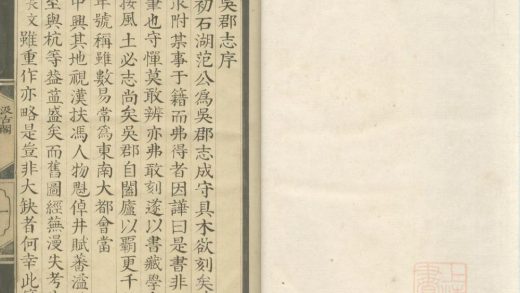 吳郡志序
初石湖范公爲吳郡志成守具木欲刻矣
求附某事于籍而弗得者因譁曰是書非
筆也守憚莫敢辨亦弗敢刻遂以書藏學
按風土必志尚矣吳郡自闔廬以霸更千
年號稱雖數易常爲東南大都會當
中興其地視漢扶馮人物魁倬井賦蕃溢
至與杭等蓋益盛矣而舊圖經蕪漫失考
長文雖重作亦略是豈非大缺者何幸此
汲古閣
一